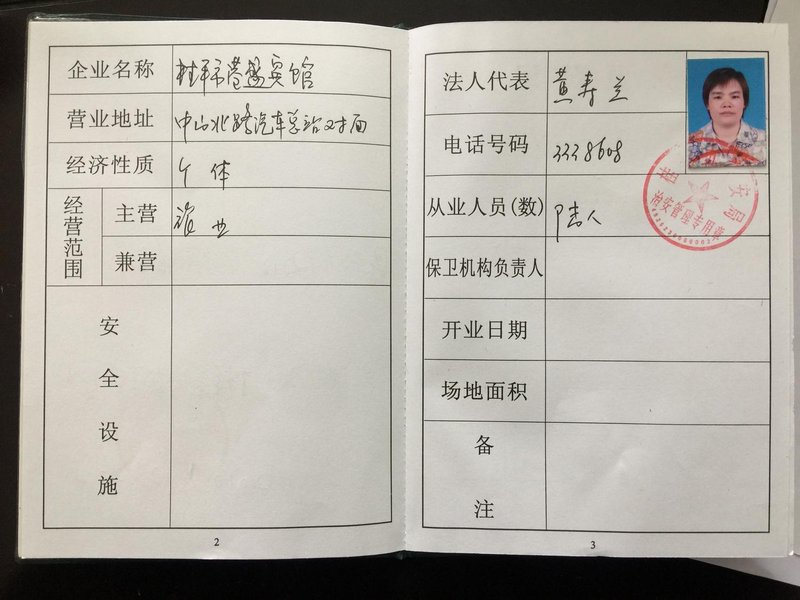 企业名称 桂平市港盛宾馆
营业地址 中山北路汽车总站对面
经济性质 个体
经营范围 主营 旅业
兼营
安全设施
2
法人代表 黄寿兰
电话号码 3338608
从业人员(数) 人
保卫机构负责人
开业日期
场地面积
备注
3
安局
治安管理专用章